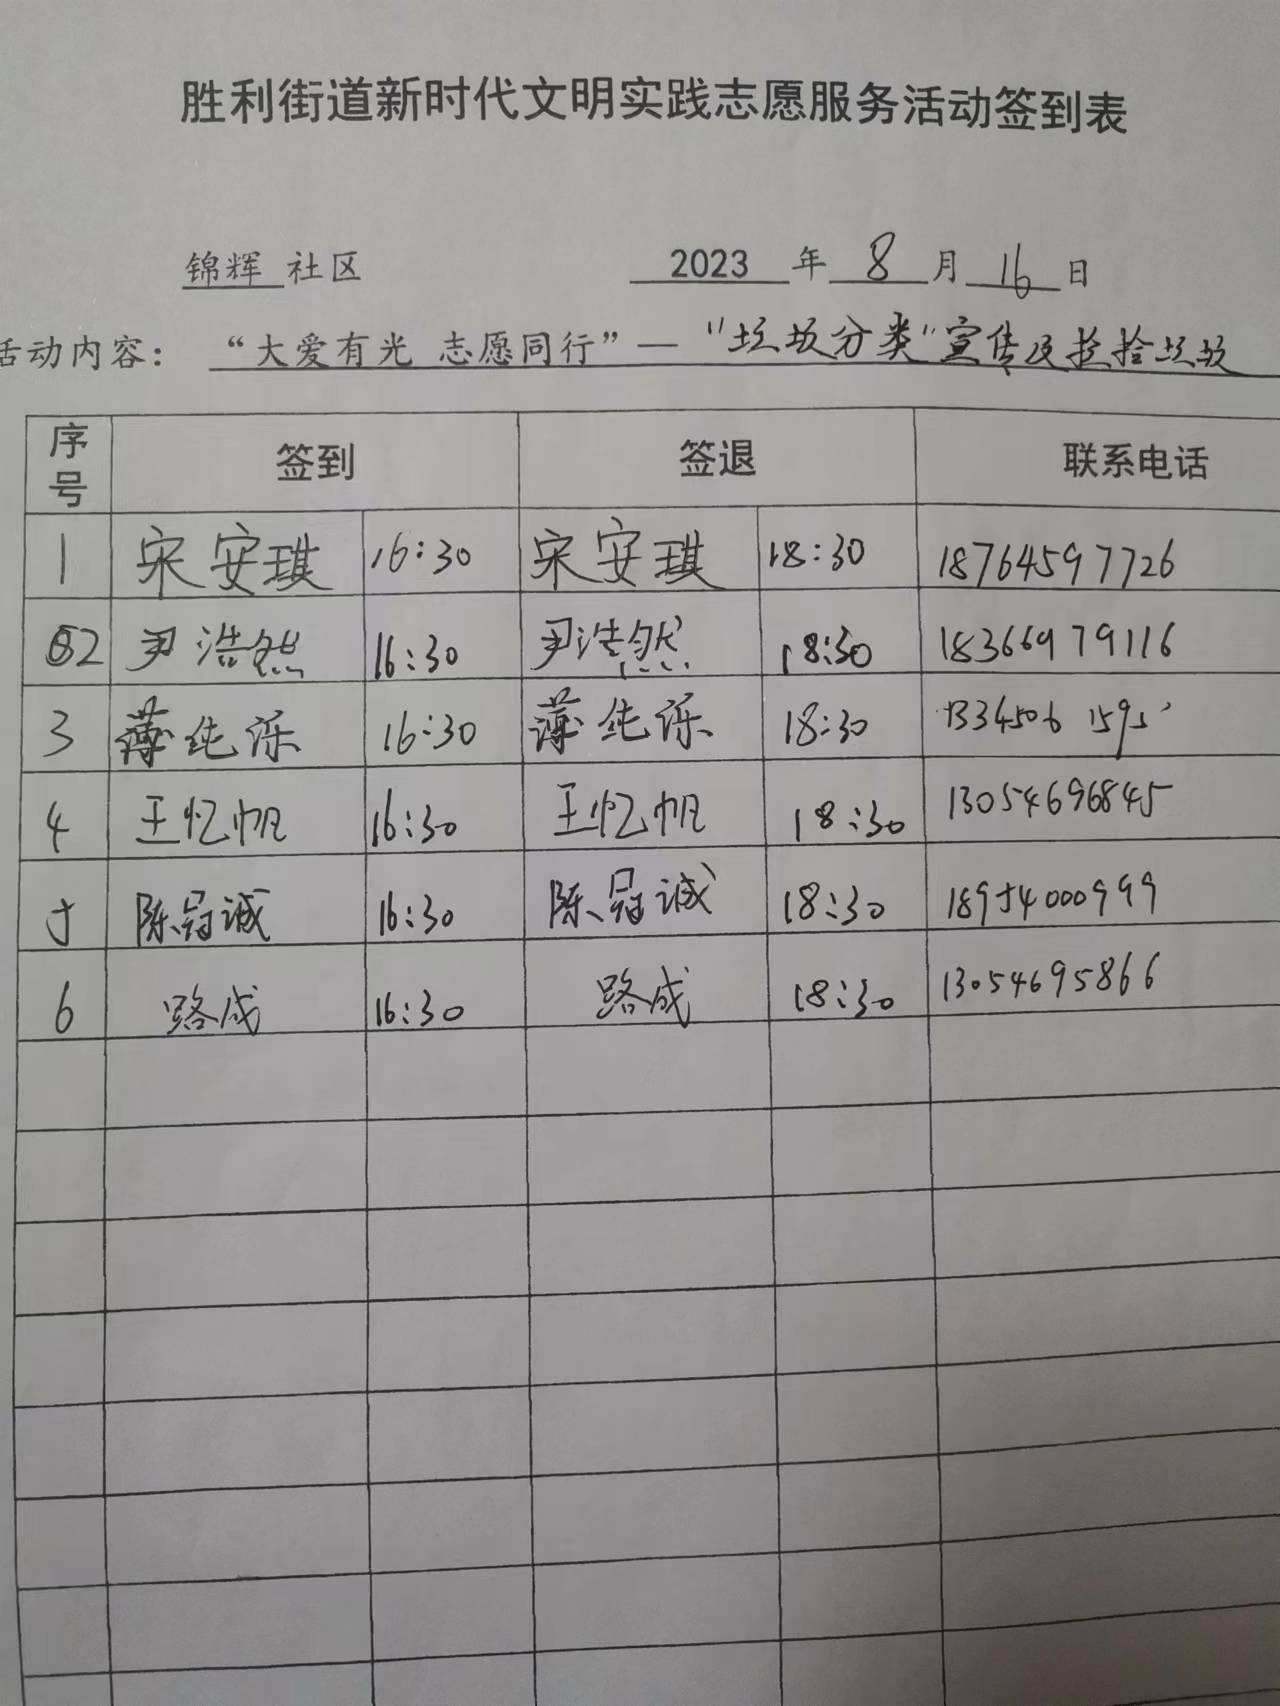 胜利街道新时代文明实践志愿服务活动签到表
锦辉 社区 2023 年 8 月 16 日
活动内容： “大爱有光 志愿同行”— “垃圾分类”宣传及捡拾垃圾
序号 签到 签退 联系电话
1 宋安琪 16:30 宋安琪 18:30 18764597726
2 尹浩然 16:30 尹浩然 18:30 18366979116
3 薄纯泺 16:30 薄纯泺 18:30 13345061595
4 王忆帆 16:30 王忆帆 18:30 13054696845
5 陈冠诚 16:30 陈冠诚 18:30 18954000999
6 路成 16:30 路成 18:30 13054695866